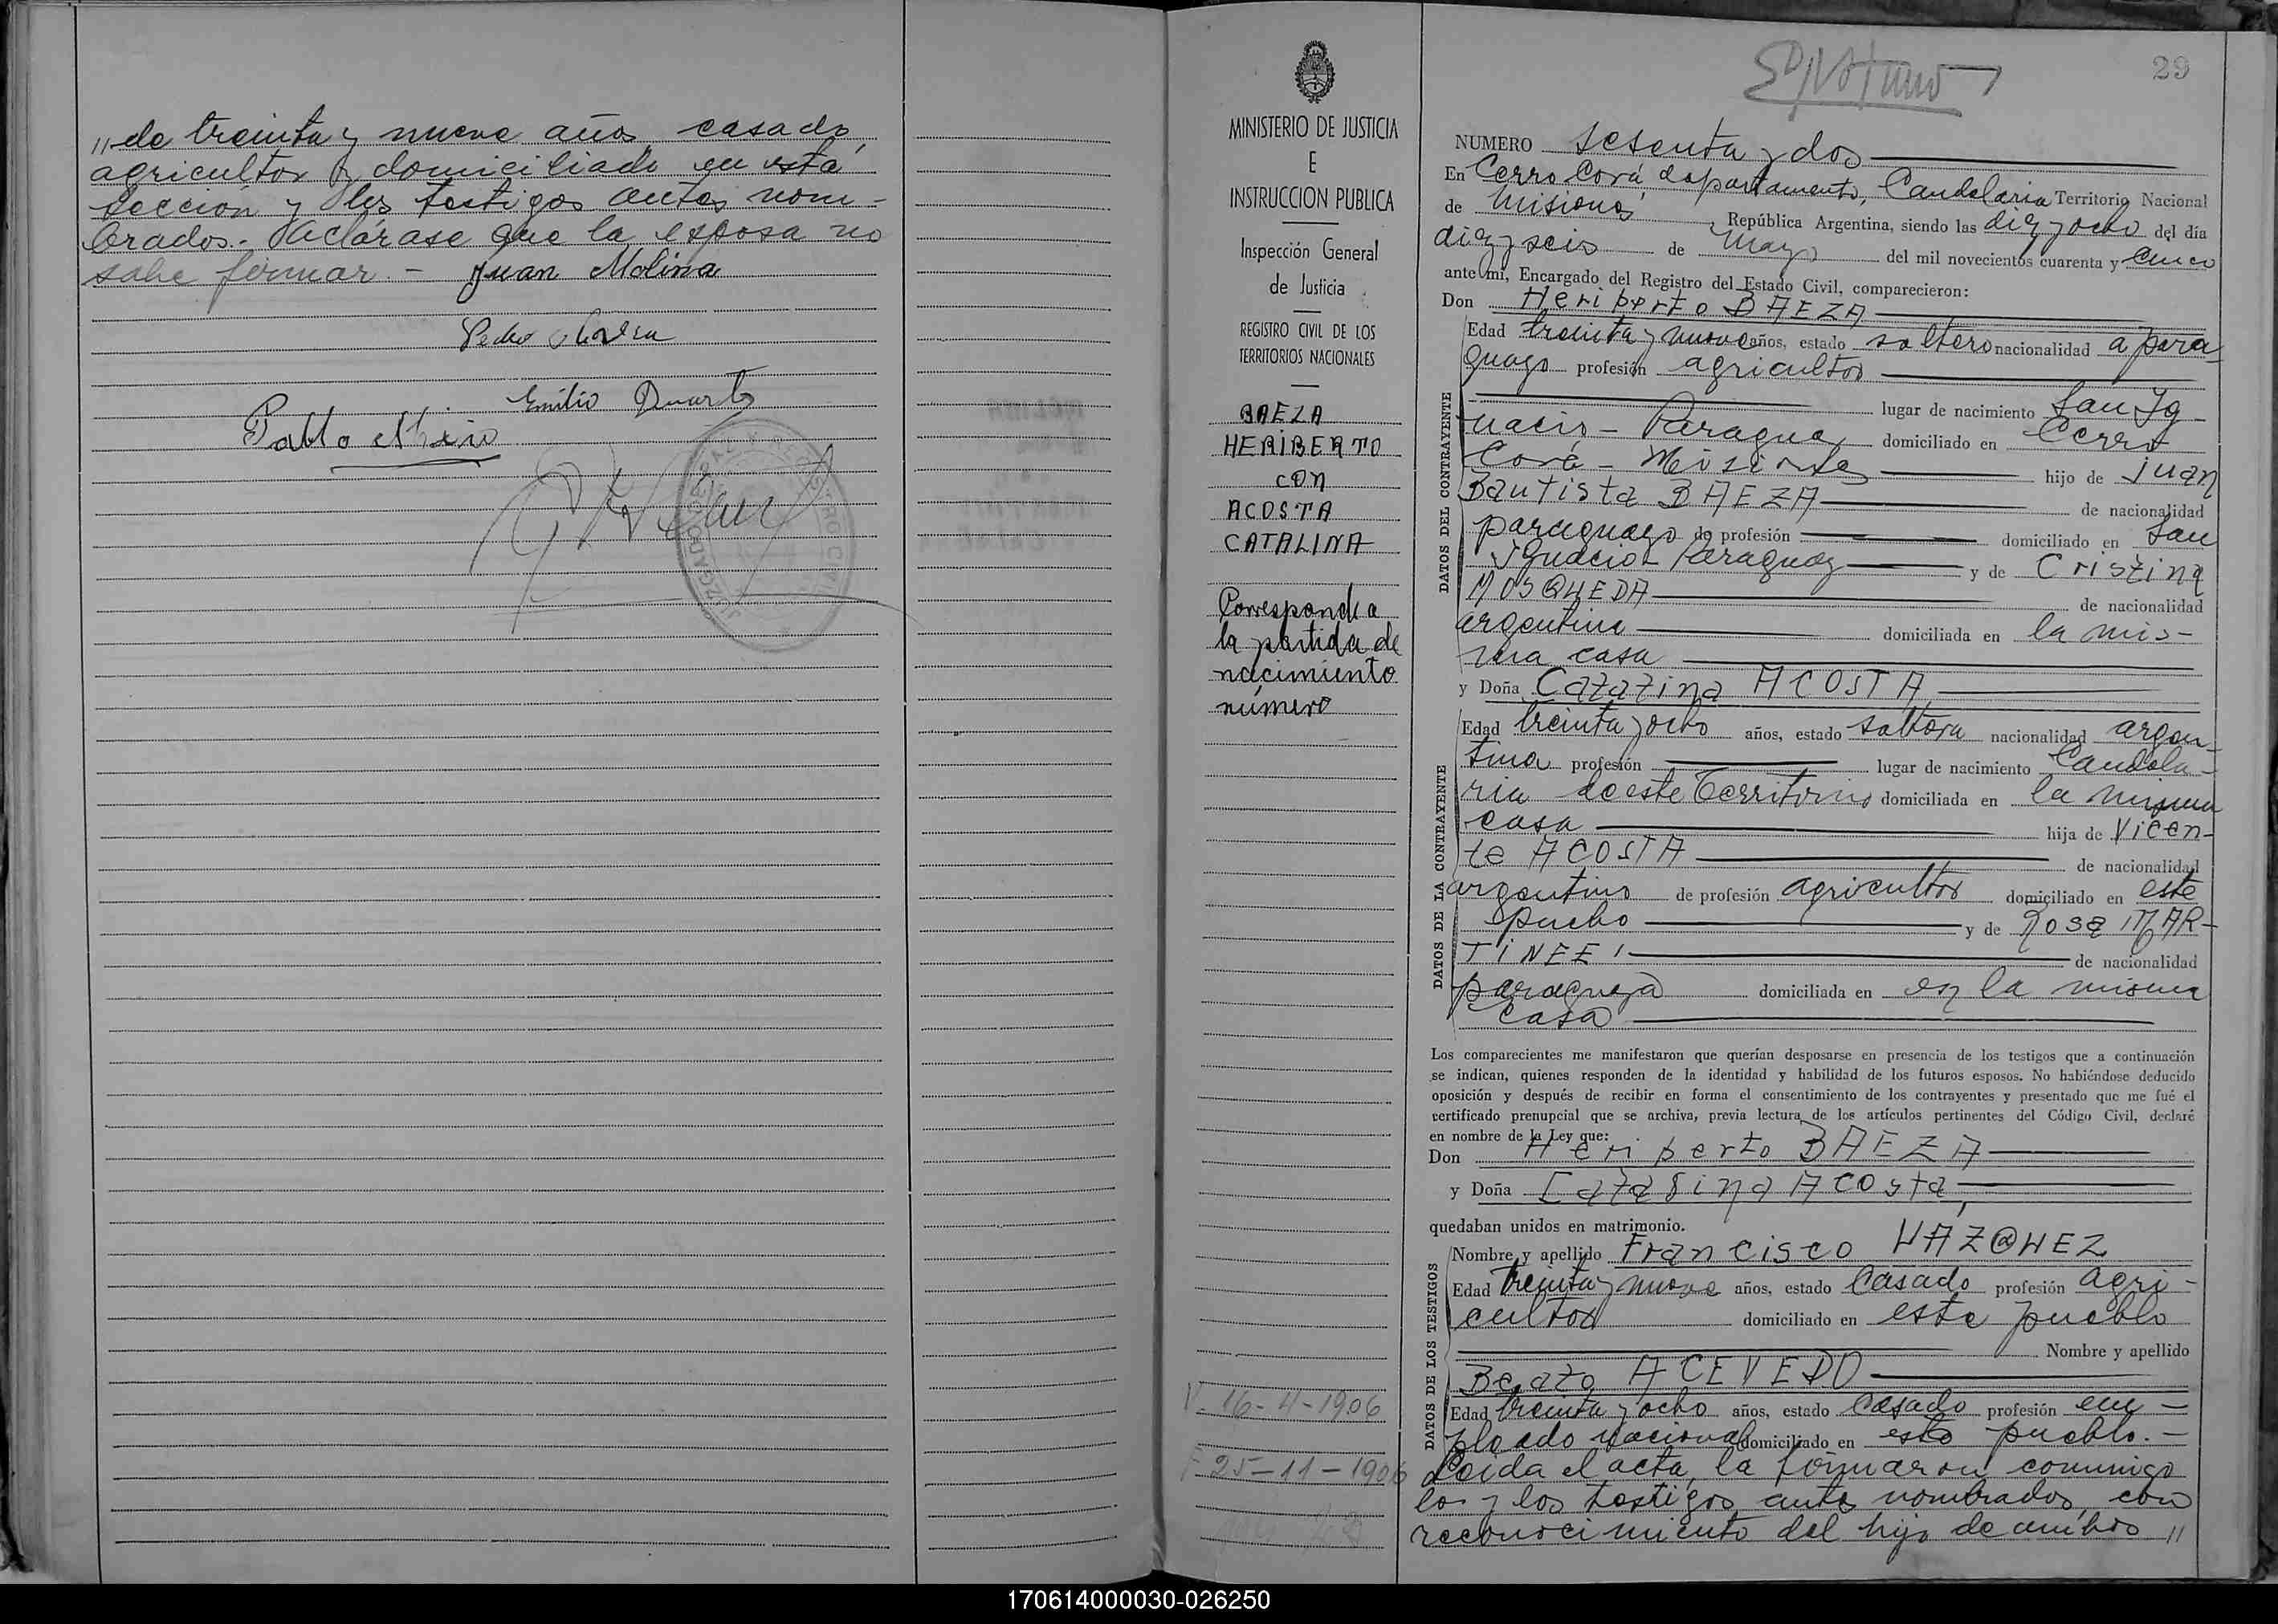 "de treinta y nueve años, casado,
agricultor y domiciliado en esta
Sección y los testigos antes nom-
brados.- Aclárase que la esposa no
sabe firmar.- Juan Molina
Pedro
Emilio Duarte
Pablo
MINISTERIO DE JUSTICIA
E
INSTRUCCION PUBLICA
Inspección General
de Justicia
REGISTRO CIVIL DE LOS
TERRITORIOS NACIONALES
BAEZA
HERIBERTO
CON
ACOSTA
CATALINA
Corresponde a
la partida de
nacimiento
número
V. 16-4-1906
F 25-11-1906
29
NUMERO sesenta y dos
En Cerro Corá, departamento, Candelaria Territorio Nacional
de Misiones, República Argentina, siendo las diez y ocho del día
diez y seis de Mayo del mil novecientos cuarenta y cinco
ante mí, Encargado del Registro del Estado Civil, comparecieron:
Don Heriberto BAEZA
DATOS DEL CONTRAYENTE
Edad treinta y nueve años, estado soltero nacionalidad a para
guayo profesión agricultor
lugar de nacimiento San Ig-
nacio - Paraguay domiciliado en Cerro
Corá - Misiones hijo de Juan
Bautista BAEZA de nacionalidad
paraguayo de profesión domiciliado en San
Ignacio - Paraguay y de Cristina
MOSQUEDA de nacionalidad
argentina domiciliada en la mis-
ma casa
y Doña Catalina ACOSTA
DATOS DE LA CONTRAYENTE
Edad treinta y ocho años, estado soltera nacionalidad argen-
tina profesión lugar de nacimiento Candela-
ria de este Territorio domiciliada en la misma
casa hija de Vicen-
te ACOSTA de nacionalidad
argentino de profesión agricultor domiciliado en este
pueblo y de Rosa MAR-
TINEZ de nacionalidad
paraguaya domiciliada en en la misma
casa
Los comparecientes me manifestaron que querían desposarse en presencia de los testigos que a continuación
se indican, quienes responden de la identidad y habilidad de los futuros esposos. No habiéndose deducido
oposición y después de recibir en forma el consentimiento de los contrayentes y presentado que me fué el
certificado prenupcial que se archiva, previa lectura de los artículos pertinentes del Código Civil, declaré
en nombre de la Ley que:
Don Heriberto BAEZA
y Doña Catalina Acosta
quedaban unidos en matrimonio.
DATOS DE LOS TESTIGOS
Nombre y apellido Francisco VAZQUEZ
Edad treinta y nueve años, estado Casado profesión agri-
cultor domiciliado en este pueblo
Nombre y apellido
Beato ACEVEDO
Edad treinta y ocho años, estado Casado profesión em-
pleado nacional domiciliado en este pueblo.-
Leída el acta, la firmaron conmigo
los y los testigos antes nombrados, con
reconocimiento del hijo de ambos "
170614000030-026250